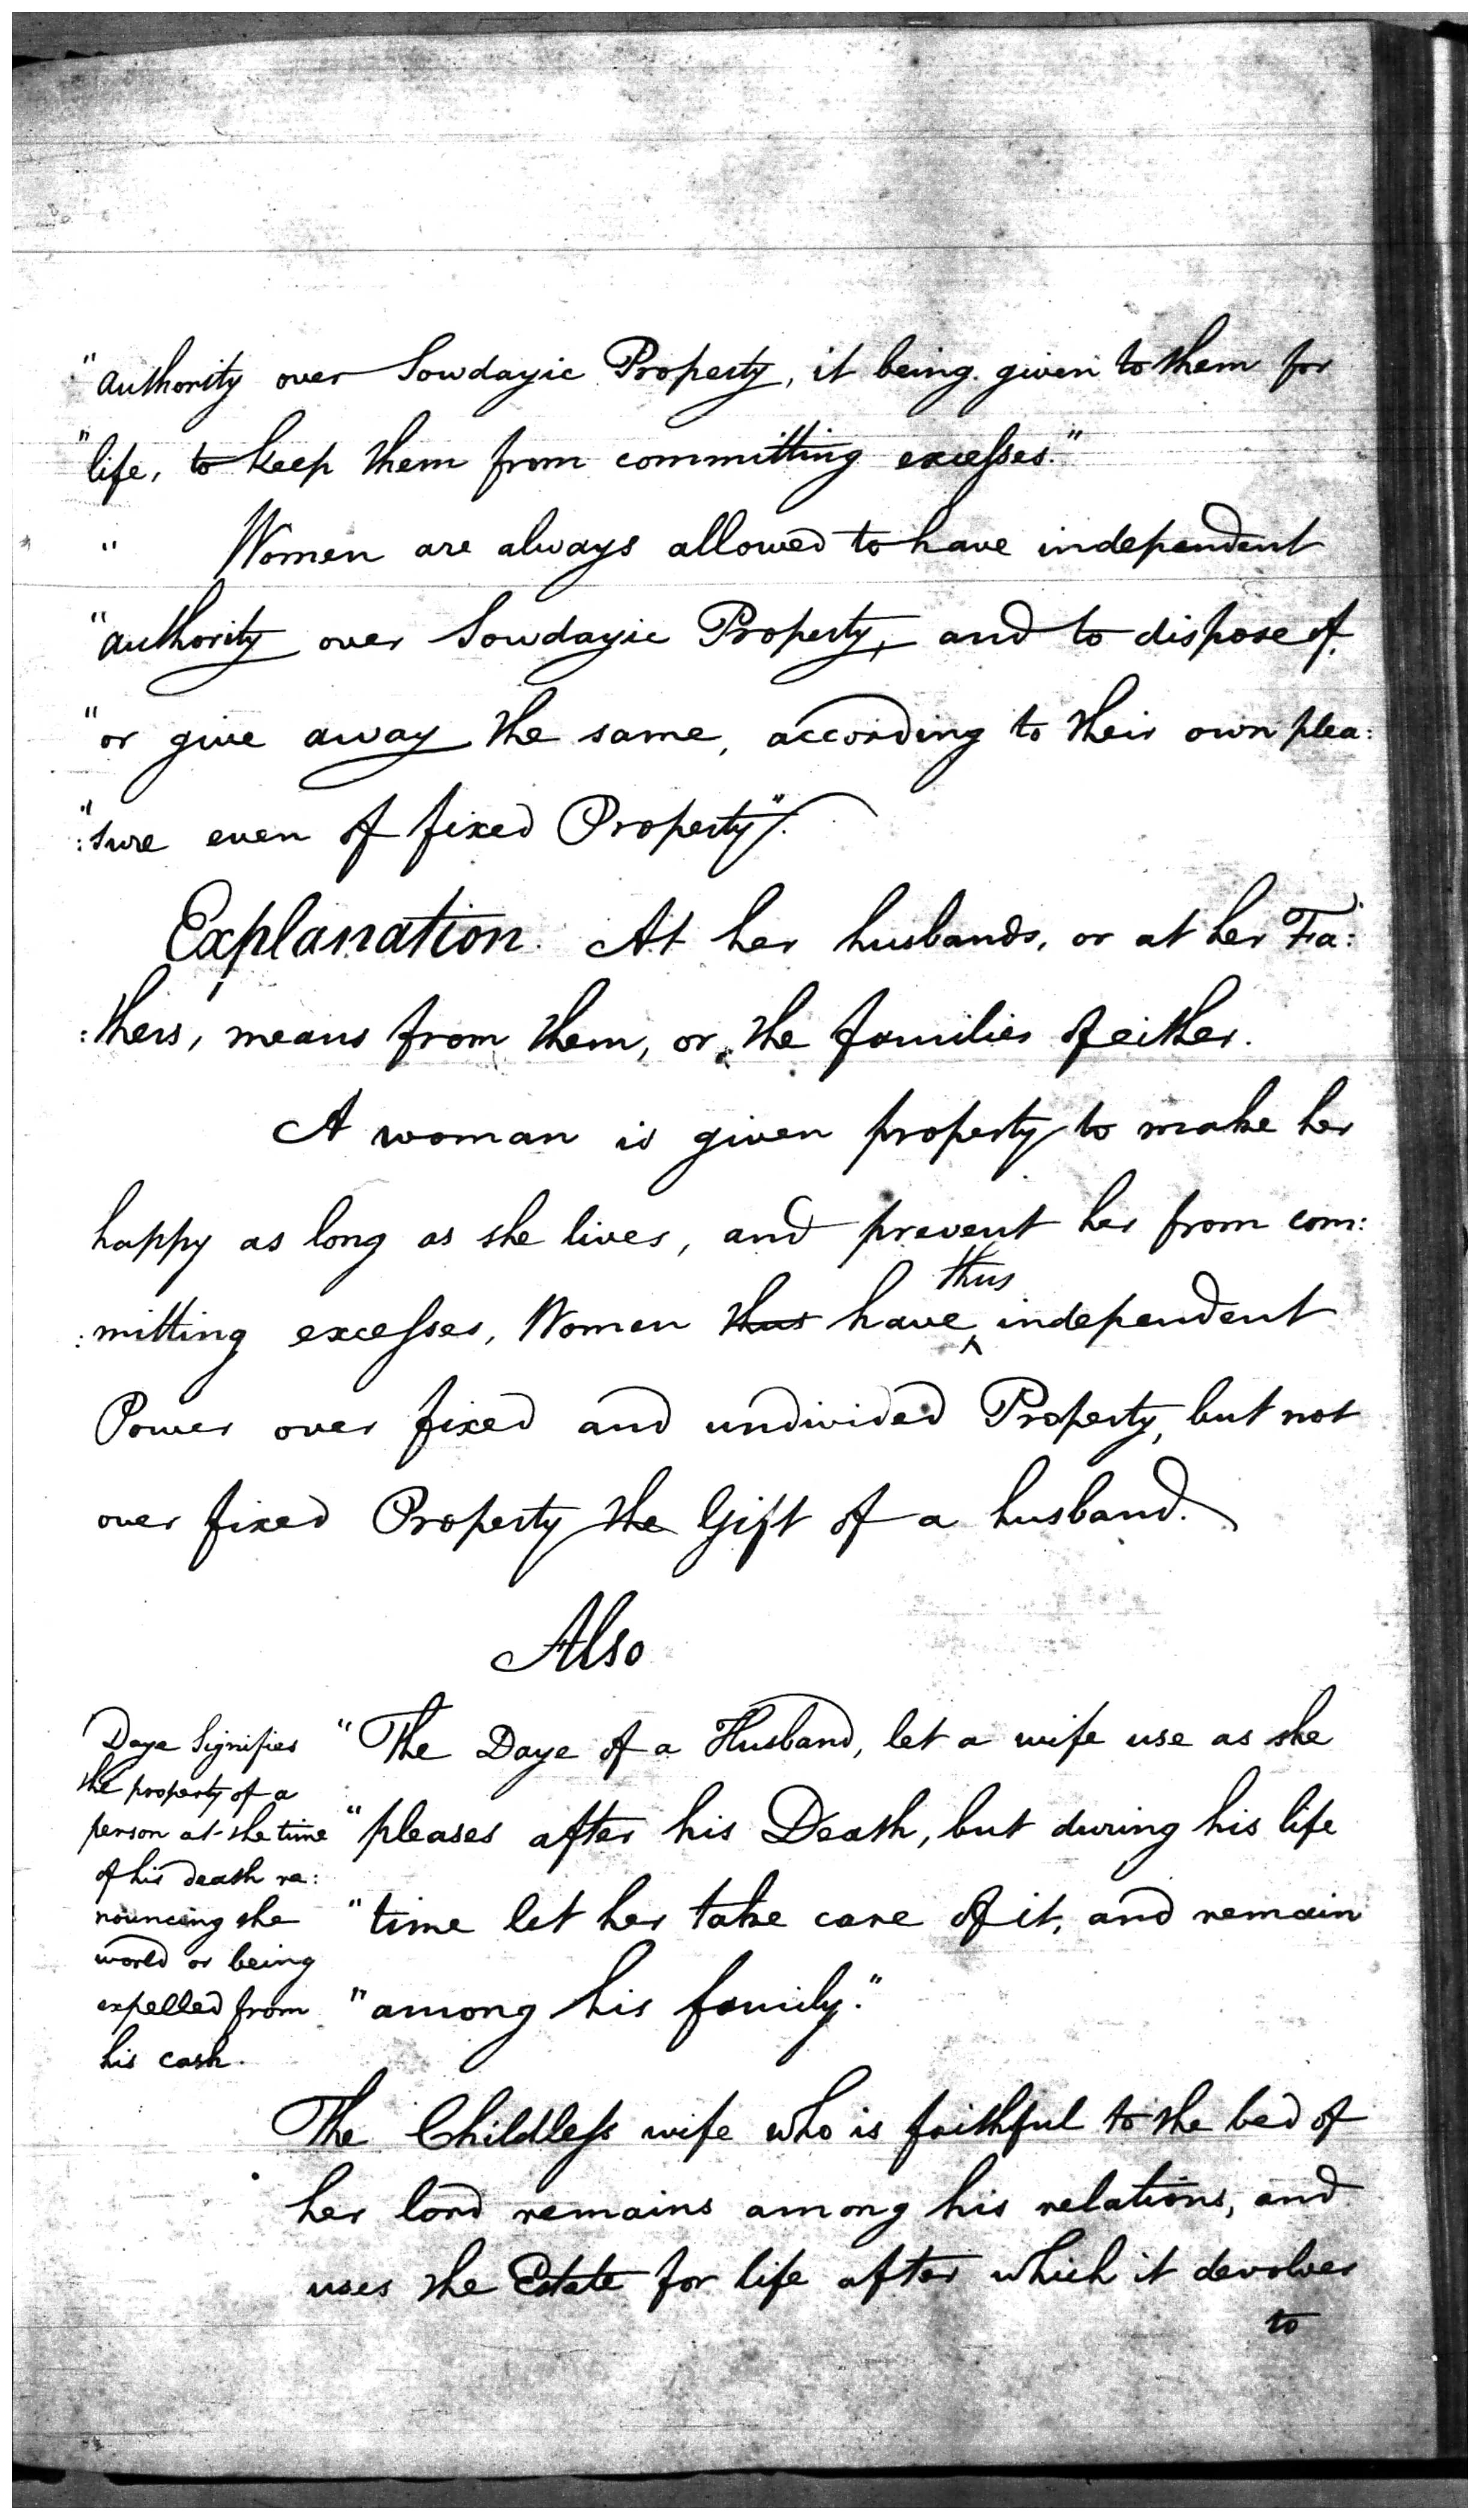 "authority over Sowdayic Property, it being given to them for
"life, to keep them from committing excesses."
" Women are always allowed to have independent
"authority over Sowdayic Property, and to dispose of,
"or give away the same, according to their own plea:
":sure even of fixed Property".
Explanation. At her husbands, or at her Fa:
:thers, means from them, or the families of either.
A woman is given property to make her
happy as long as she lives, and prevent her from com:
thus
:mitting excesses, Women thus have ‸ independent
Power over fixed and undivided Property, but not
over fixed Property the Gift of a husband.
Also
"The Daye of a Husband, let a wife use as she
"pleases after his Death, but during his life
"time let her take care of it, and remain
"among his family."
Daye Signifies
the property of a
person at the time
of his death re:
nouncing the
world or being
expelled from
his cast.
The Childless wife who is faithful to the bed of
her lord remains among his relations, and
uses the Estate for life after which it devolves
to